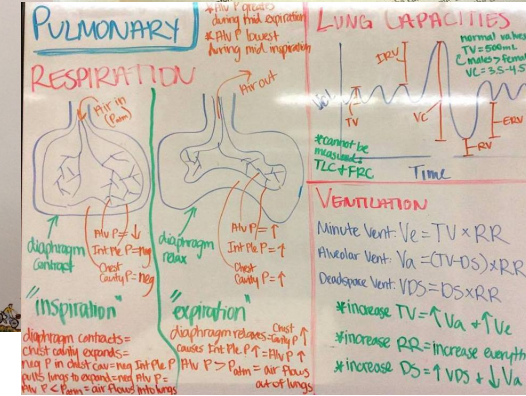 PULMONARY
*Alv P
during mid expiration
*Alv P lowest
during mid inspiration
RESPIRATION
Air in
(Patm)
Air out
diaphragm
contract
Alv P= ↓
Int Ple P=neg
Chest
Cavity P=neg
diaphragm
relax
Alv P= ↑
Int Ple P=↑
Chest
Cavity P=↑
"inspiration"
diaphragm contracts=
chest cavity expands=
neg P in chest cav=neg Int Ple P
pulls lungs to expand=neg Alv P=
Alv P < Patm = air flows into lungs
"expiration"
diaphragm relaxes= Chest Cavity P ↑
causes Int Ple P ↑= Alv P ↑
Alv P > Patm = air flows
out of lungs
LUNG CAPACITIES
normal values
TV=500mL
males > females
VC=3.5-4.5
IRV
Vol
TV
VC
ERV
RV
*cannot be
measured
TLC & FRC
Time
VENTILATION
Minute Vent: Ve=TV×RR
Alveolar Vent: Va=(TV-DS)×RR
Deadspace Vent: VDS=DS×RR
*increase TV=↑Va & ↑Ve
*increase RR=increase everyth
*increase DS=↑VDS & ↓Va